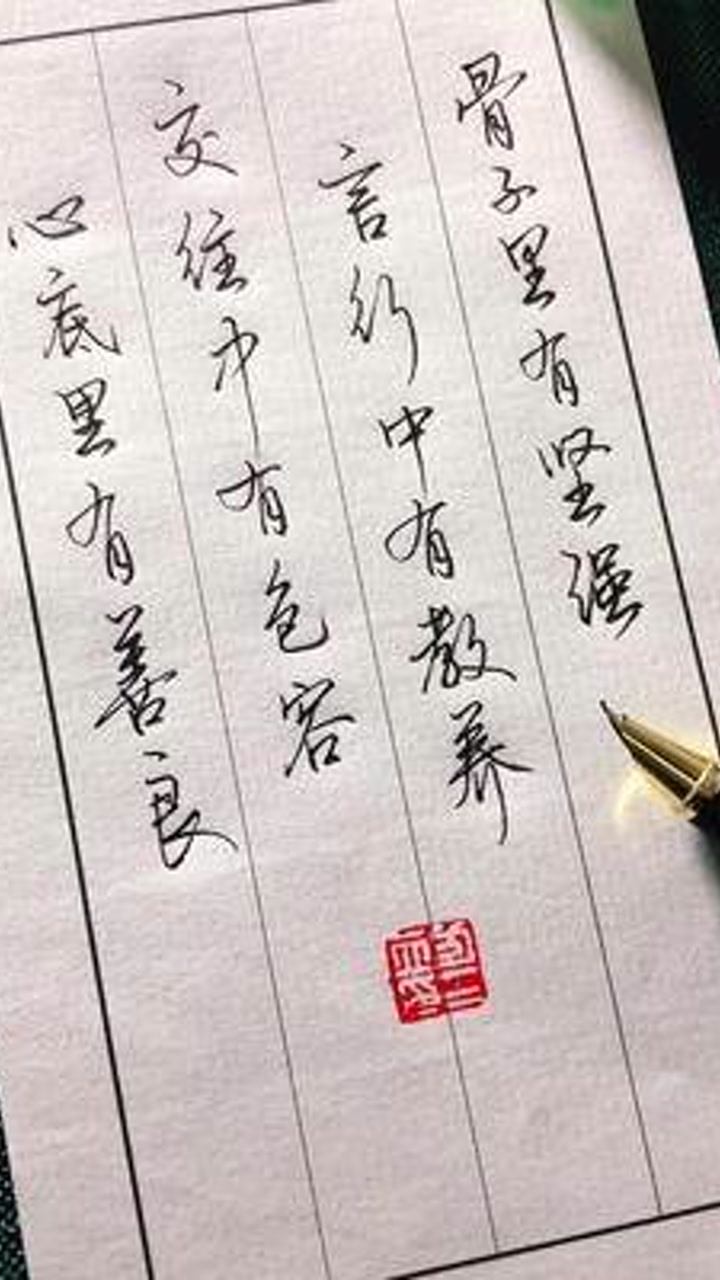 骨子里有坚强
言行中有教养
交往中有包容
心底里有善良